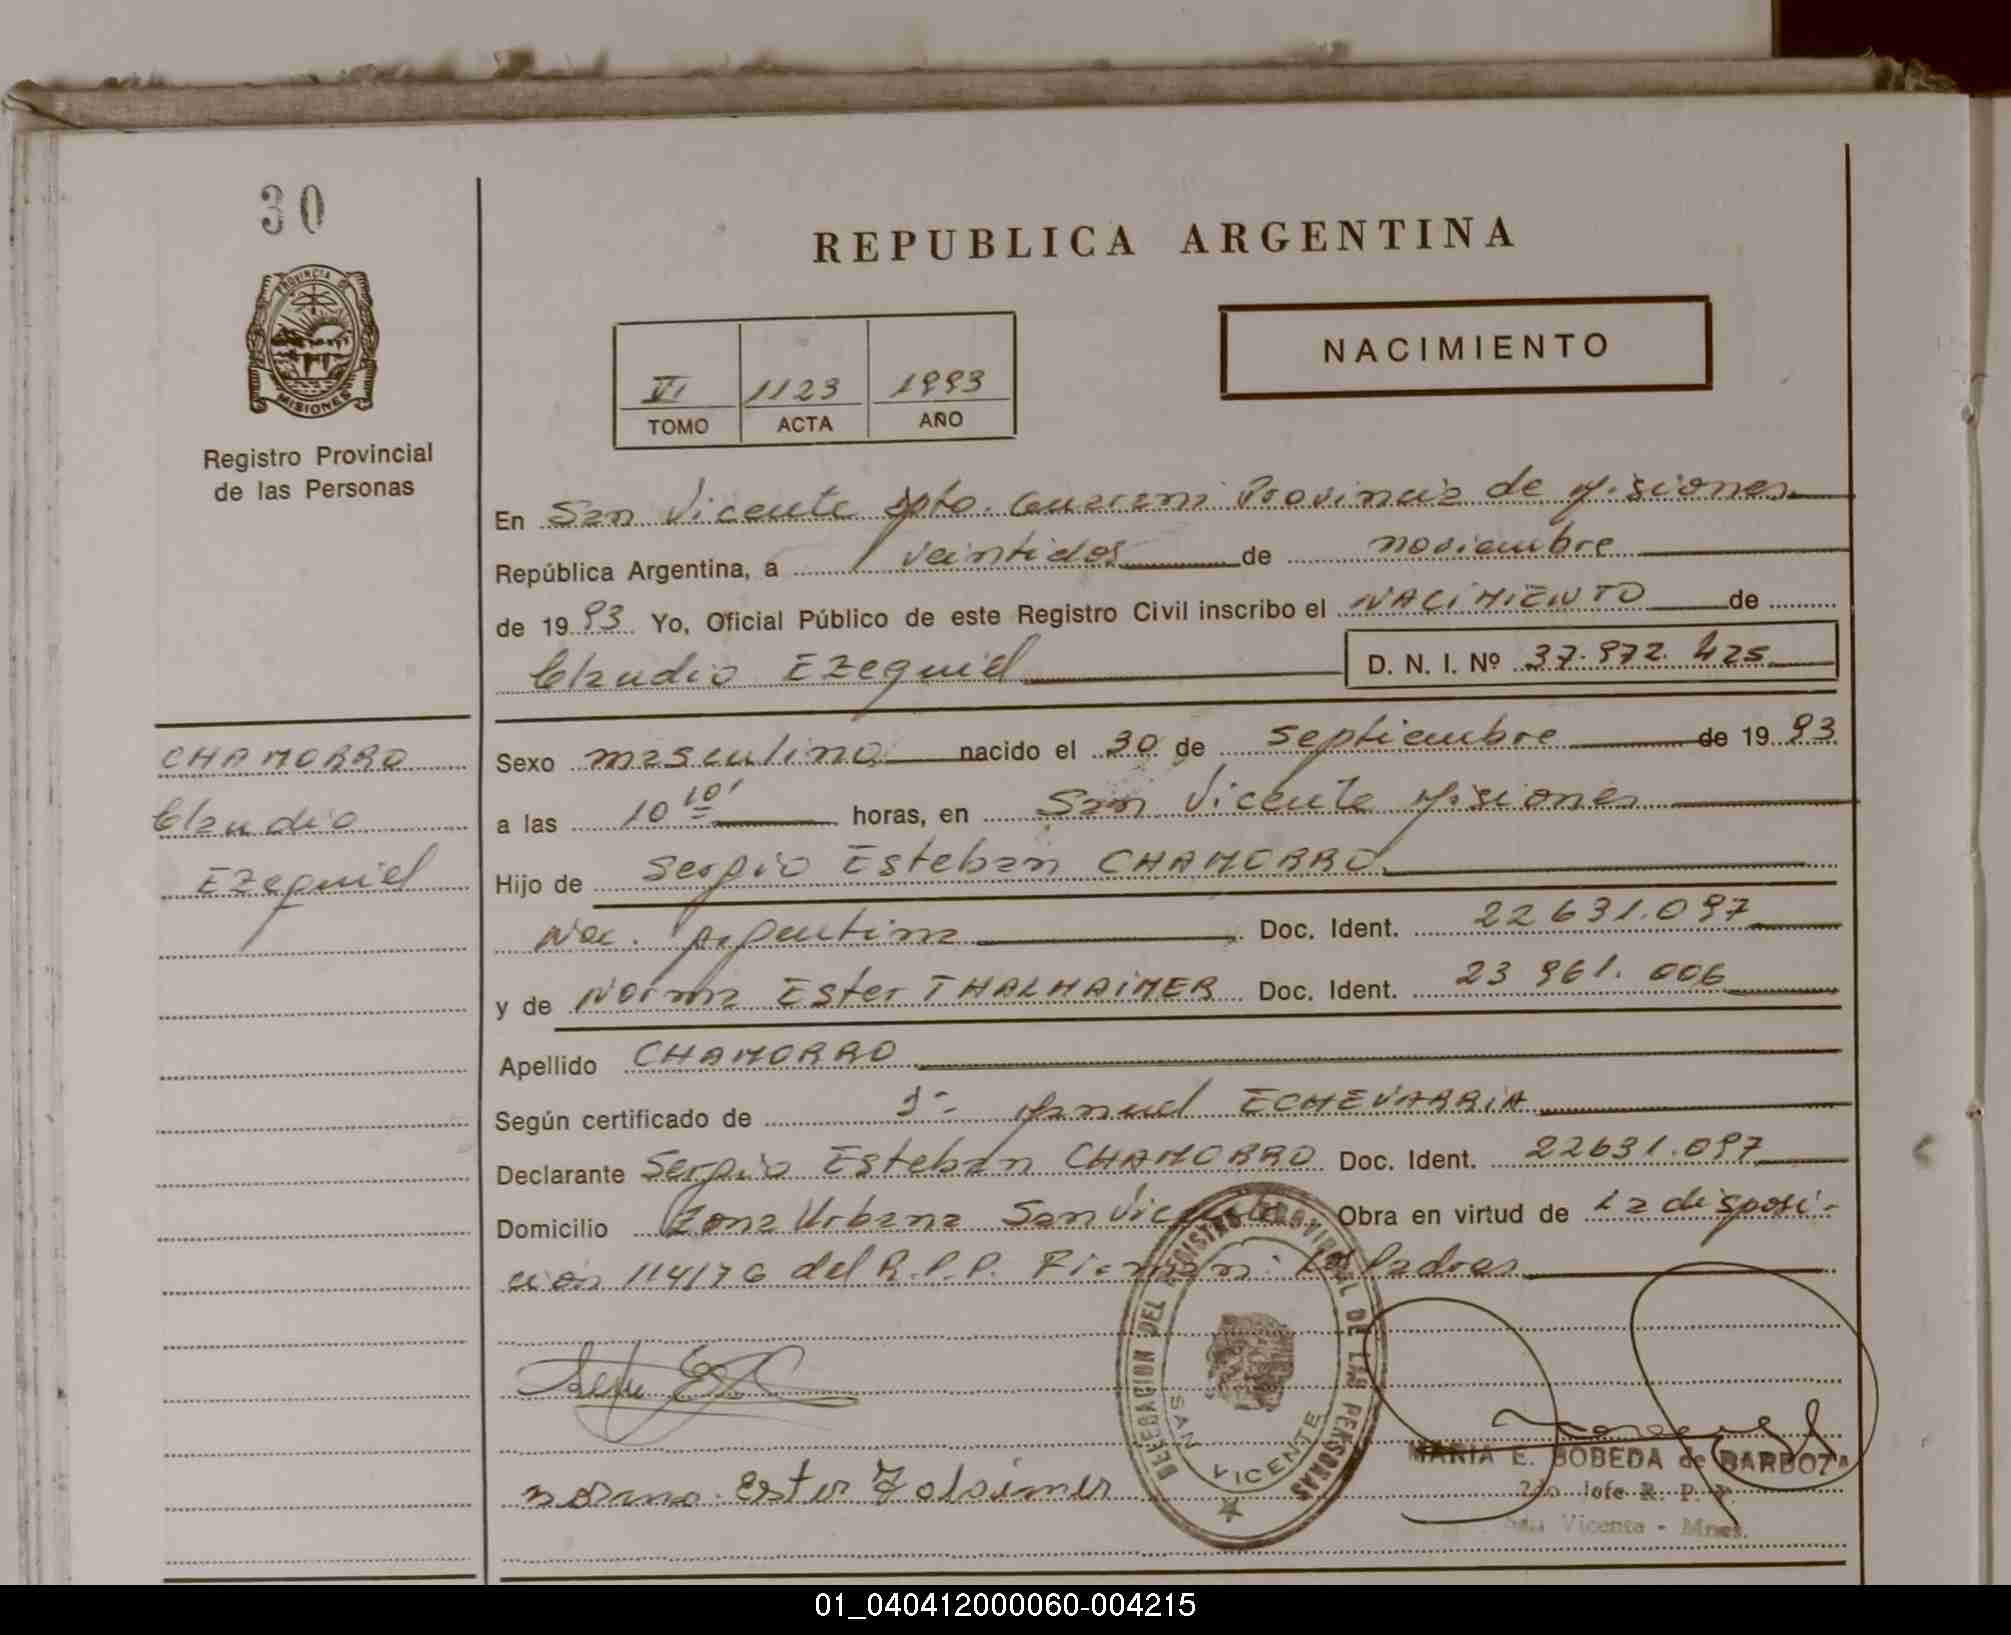 30
PROVINCIA DE
MISIONES
Registro Provincial
de las Personas
REPUBLICA ARGENTINA
NACIMIENTO
VI 1123 1993
TOMO ACTA AÑO
En San Vicente Dpto. Guarani Provincia de Misiones
República Argentina, a veintidos de noviembre
de 19 93 Yo, Oficial Público de este Registro Civil inscribo el NACIMIENTO de
Claudio Ezequiel D. N. I. Nº 37.972.425
CHAMORRO
Claudio
Ezequiel
Sexo masculino nacido el 30 de septiembre de 19 93
a las 10 10' horas, en San Vicente Misiones
Hijo de Sergio Esteban CHAMORRO
Nac. Argentina Doc. Ident. 22631.097
y de Norma Ester THALHAIMER Doc. Ident. 23 961. 006
Apellido CHAMORRO
Según certificado de Manuel ECHEVARRIA
Declarante Sergio Esteban CHAMORRO Doc. Ident. 22631.097
Domicilio Zona Urbana San Vicente Obra en virtud de la disposi-
ción 114/76 del R.P.P. Firman: Los Padres
DELEGACION DEL REGISTRO PROVINCIAL DE LAS PERSONAS
SAN VICENTE
MARIA E. BOBEDA de BARBOZA
2do Jefe R. P. P.
San Vicente - Mnes.
norma Ester Talaimer
01_040412000060-004215